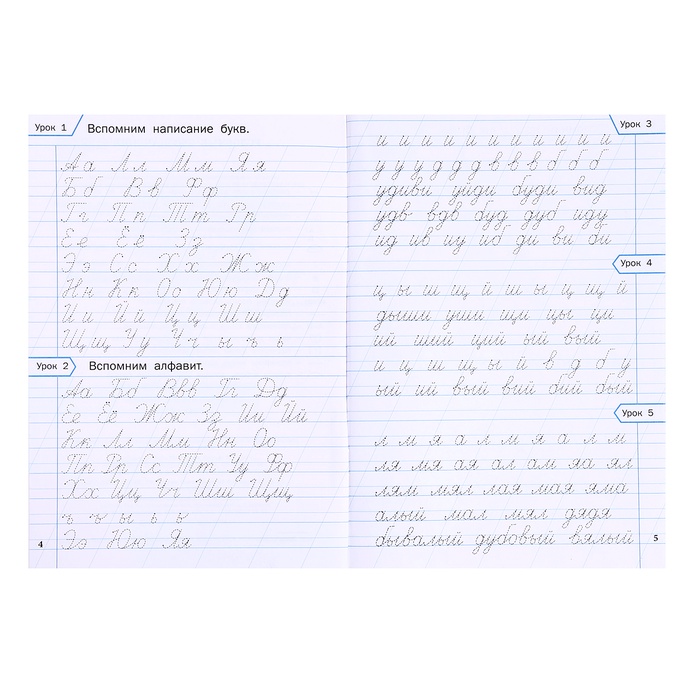 Урок 1
Вспомним написание букв.
Аа Лл Мм Яя
Бб Вв Фф
Гг Пп Тт Рр
Ее Ёё Зз
Ээ Сс Хх Жж
Нн Кк Оо Юю Дд
Ии Йй Цц Шш
Щщ Уу Чч ы ъ ь
Урок 2
Вспомним алфавит.
Аа Бб Ввв Гг Дд
Ее Ёё Жж Зз Ии Йй
Кк Лл Мм Нн Оо
Пп Рр Сс Тт Уу Фф
Хх Цц Чч Шш Щщ
ъ ъ ы ь ь
Ээ Юю Яя
4
Урок 3
и и и и и и и и и и и и
у у у д д д в в в б б б
удиви уйди буди вид
удв вдв буд дуб иду
ид ив иу иб ди ви би
Урок 4
ц ы ш щ й ш ы ц щ й
дыши уши щи цы ци
ий ший щий ый вый
и ц ш щ ы й в д б у
ый ий вый вий бий бый
Урок 5
л м я а л м я а л м
ля мя ая ал ам яа ял
лям мял лая мая яма
алый мал мял дядя
бывалый дубовый вялый
5